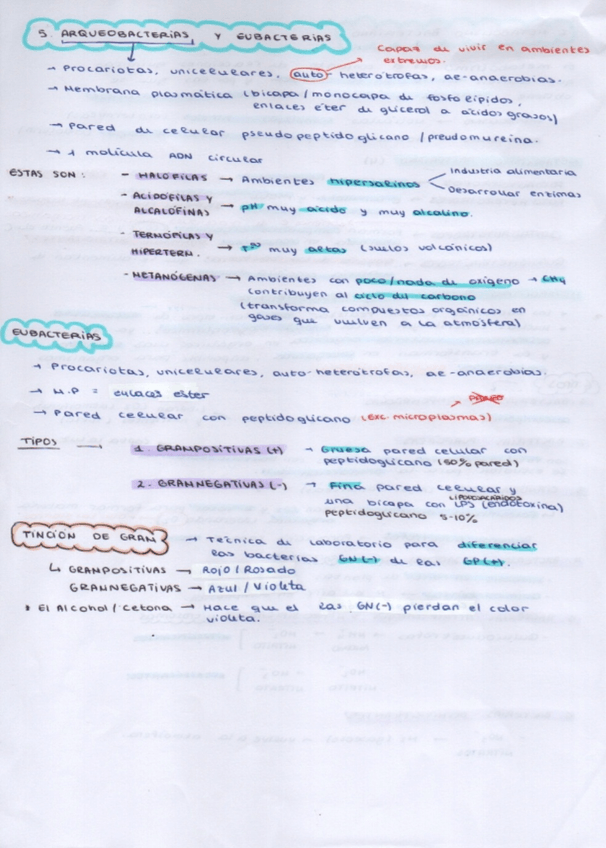 5. ARQUEOBACTERIAS Y EUBACTERIAS
Capaz de vivir en ambientes
extremos.
→ Procariotas, unicelulares, auto-heterótrofas, ae-anaerobias.
→ Membrana plasmática (bicapa/monocapa de fosfolípidos,
enlaces éter de glicerol a ácidos grasos)
→ Pared de celular pseudopeptidoglicano/pseudomureina.
→ 1 molícula ADN circular
ESTAS SON: - HALÓFILAS → Ambientes hipersalinos
Industria alimentaria
Desarrollar entimas
- ACIDÓFILAS Y
ALCALÓFINAS → pH muy ácido y muy alcalino.
- TERMÓFILAS Y
HIPERTERM. → Tªˢ muy altas (suelos volcánicos)
- METANÓGENAS → Ambientes con poco/nada de oxígeno → CH4
contribuyen al ciclo del carbono
(transforma compuestos orgánicos en
gases que vuelven a la atmósfera)
EUBACTERIAS
→ Procariotas, unicelulares, auto-heterótrofas, ae-anaerobias.
→ M.P = enlaces ester
→ Pared celular con peptidoglicano (exc. microplasmas)
TIPOS → 1. GRAMPOSITIVAS (+) → Gruesa pared celular con
peptidoglicano (50% pared)
2. GRAMNEGATIVAS (-) → Fina pared celular y
LIPOPOLISACÁRIDOS
una bicapa con LPS (endotoxina)
peptidoglicano 5-10%
TINCIÓN DE GRAM → Técnica de laboratorio para diferenciar
las bacterias GN(-) de las GP(+).
↳ GRAMPOSITIVAS → Rojo/Rosado
GRAMNEGATIVAS → Azul/Violeta
• El Alcohol/Cetona → Hace que el las GN(-) pierdan el color
violeta.